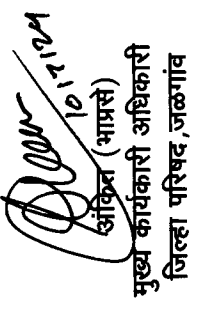 10/7/24
अंकित (भाप्रसे)
मुख्य कार्यकारी अधिकारी
जिल्हा परिषद,जळगांव